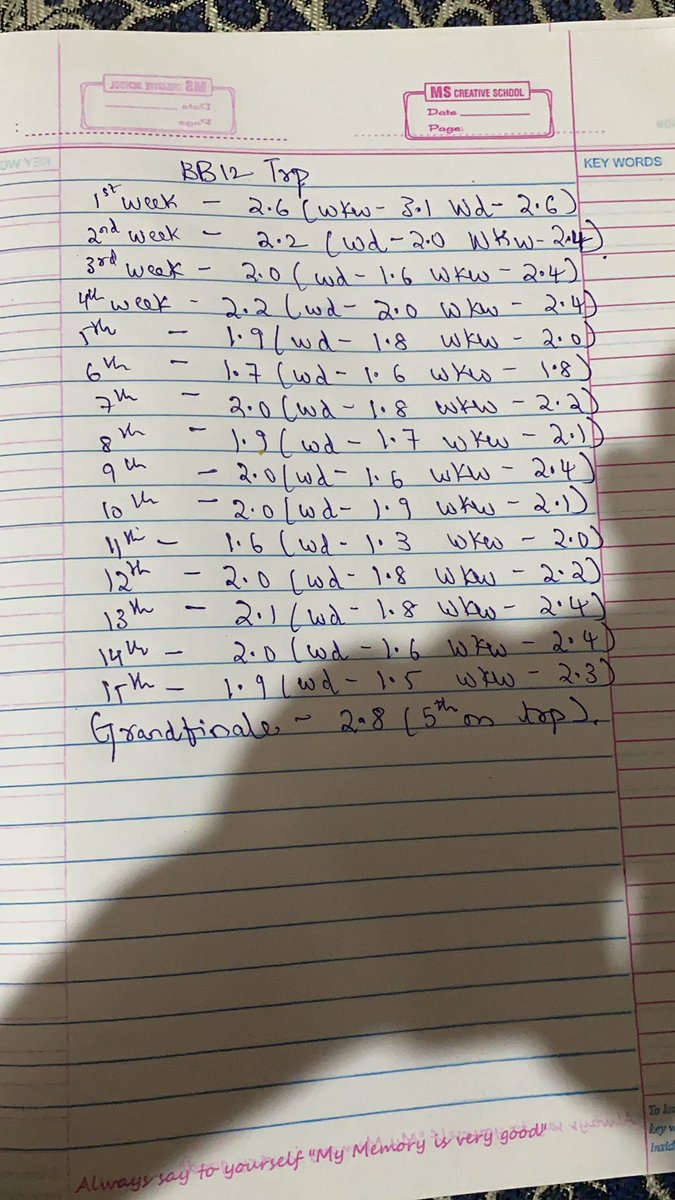 MS CREATIVE SCHOOL
Date
Page:
KEY WORDS
BB12 Trp
1st week - 2.6 (wkw - 3.1 Wd - 2.6)
2nd week - 2.2 (wd - 2.0 WKW - 2.4)
3rd week - 2.0 (wd - 1.6 wkw - 2.4)
4th week - 2.2 (wd - 2.0 wkw - 2.4)
5th - 1.9 (wd - 1.8 wkw - 2.0)
6th - 1.7 (wd - 1.6 wkw - 1.8)
7th - 2.0 (wd - 1.8 wkw - 2.2)
8th - 1.9 (wd - 1.7 wkw - 2.1)
9th - 2.0 (wd - 1.6 wkw - 2.4)
10th - 2.0 (wd - 1.9 wkw - 2.1)
11th - 1.6 (wd - 1.3 wkw - 2.0)
12th - 2.0 (wd - 1.8 wkw - 2.2)
13th - 2.1 (wd - 1.8 wkw - 2.4)
14th - 2.0 (wd - 1.6 wkw - 2.4)
15th - 1.9 (wd - 1.5 wkw - 2.3)
Grandfinale - 2.8 (5th on trp).
Always say to yourself "My Memory is very good"